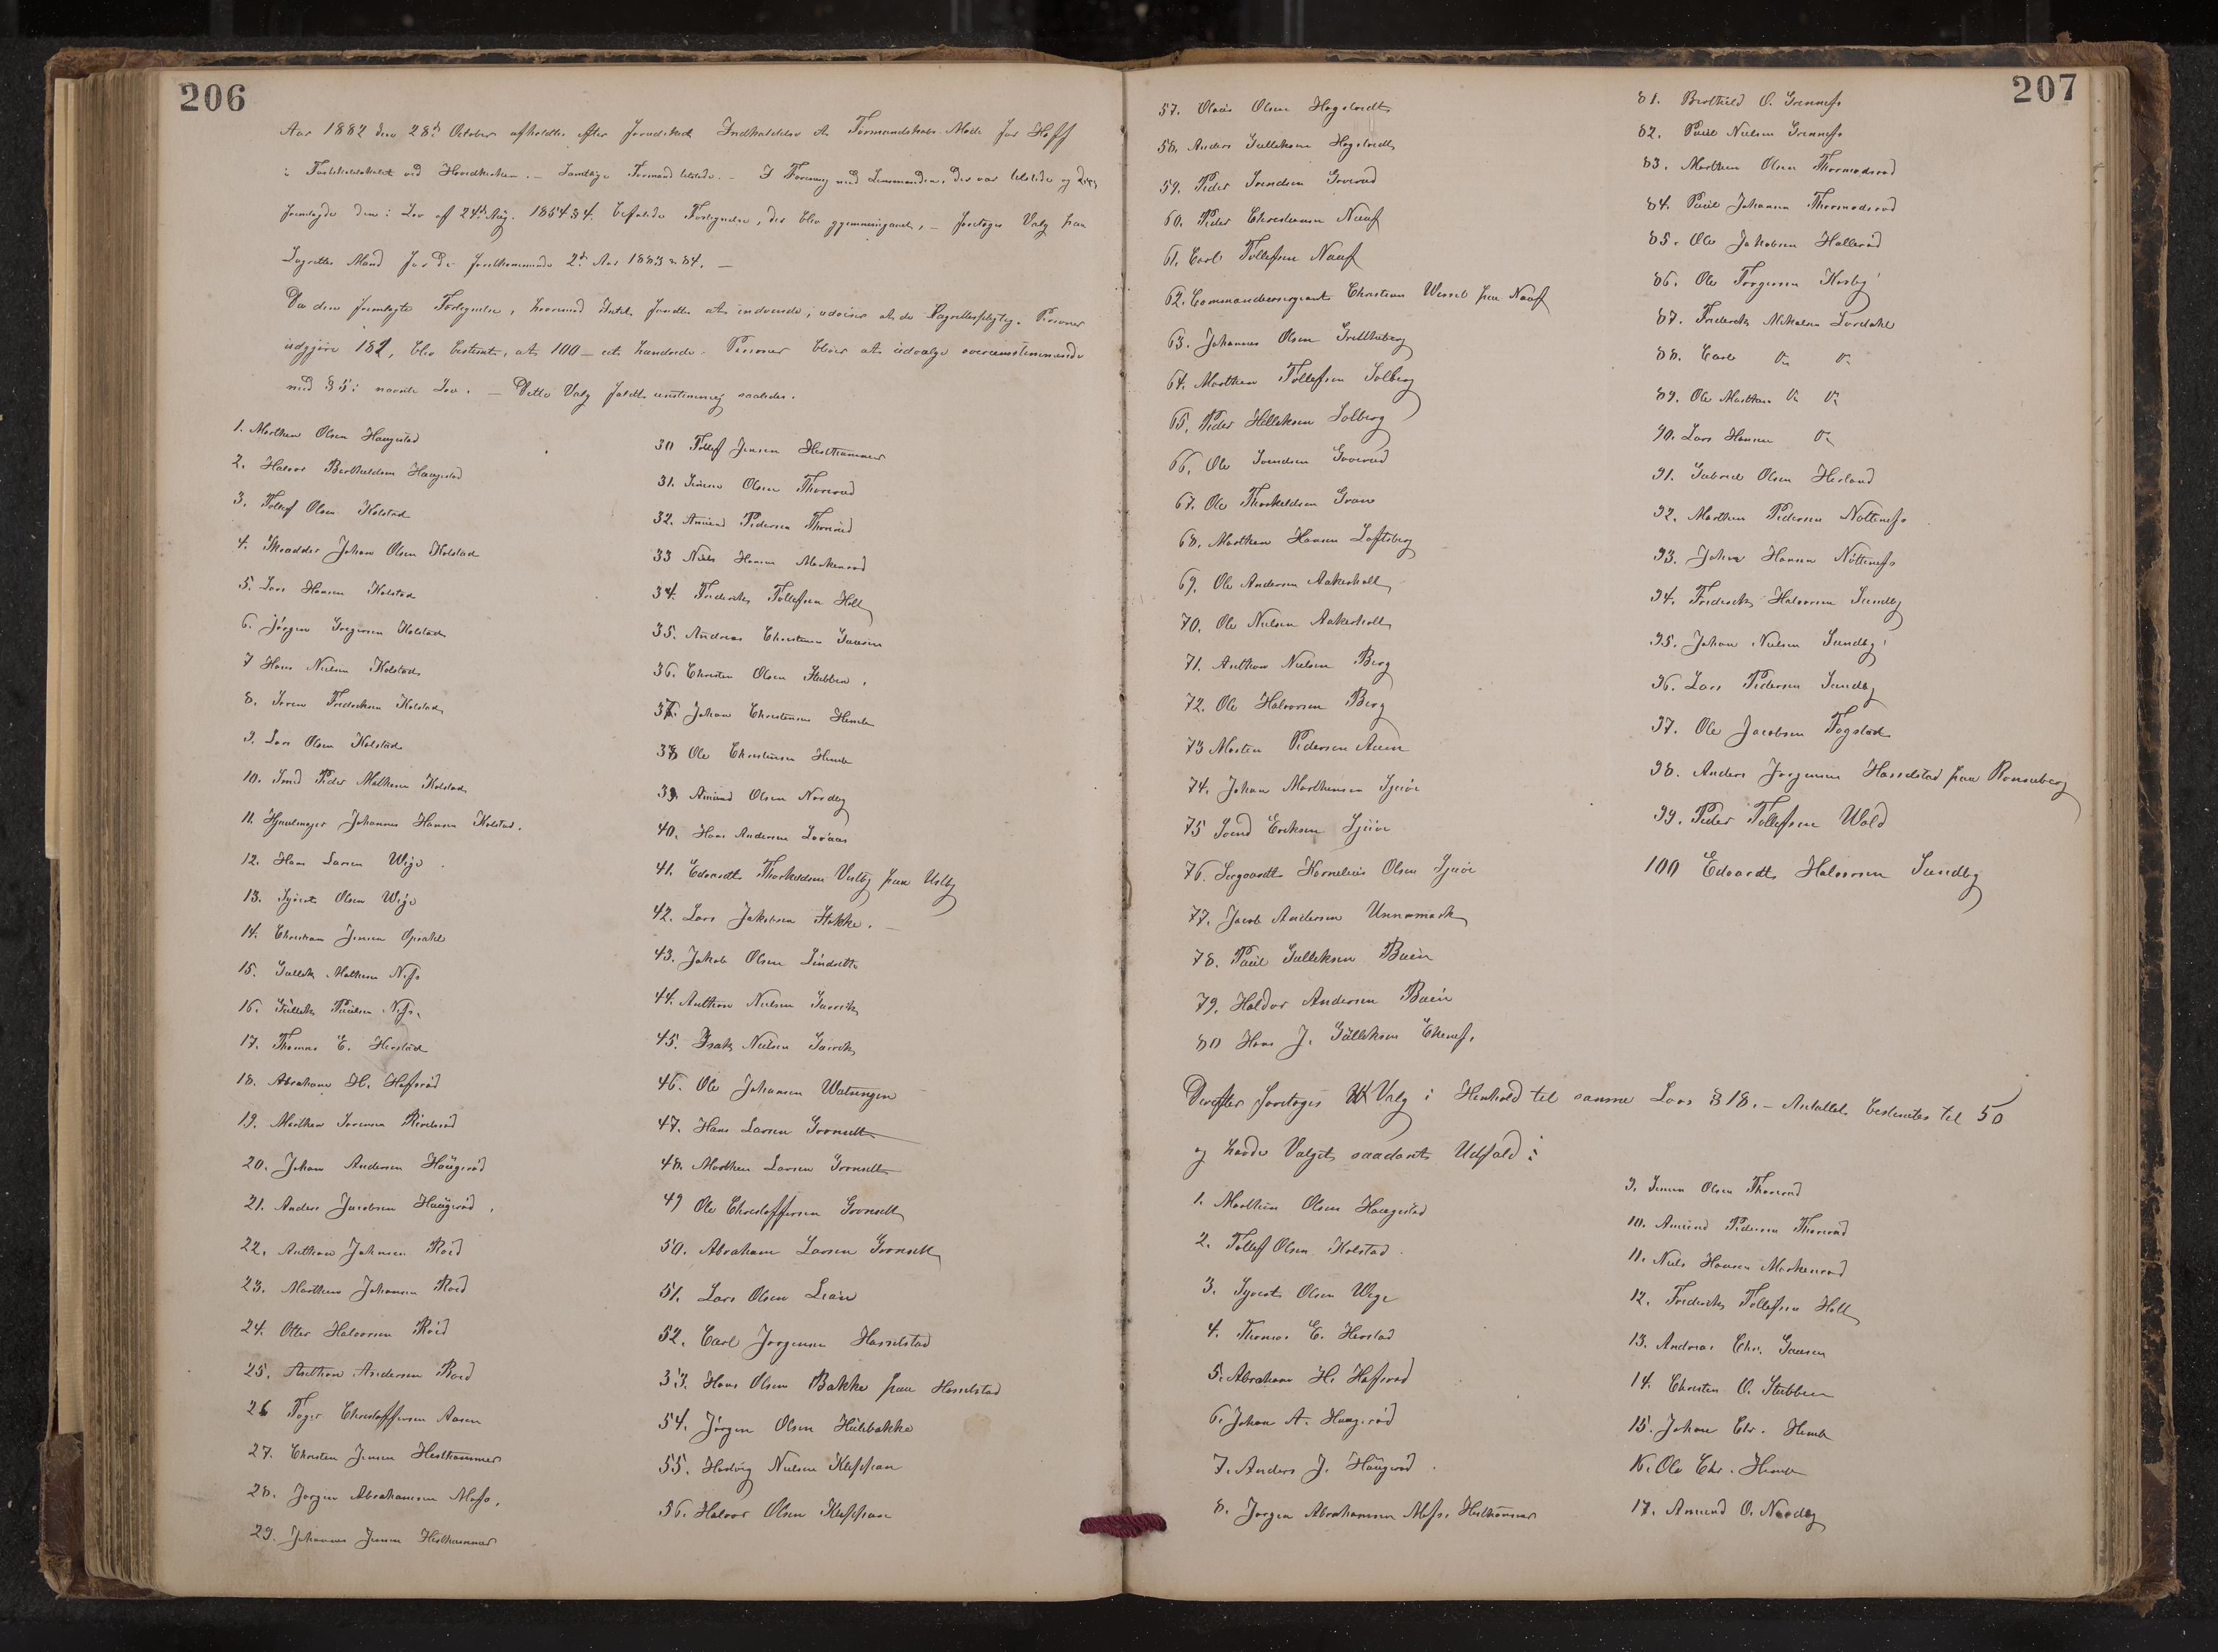 206
Aar 1882 den 28de Oktober afholdtes efter forudskeet Indkaldelse et Formandskabs Møde for Hoff
i Forlikelseslokalet ved Hovedkirken. – Samtlige Formænd tilstede. – I Forening med Lensmanden, der var tilstede og
fremlagde den i Lov af 24de Aug. 1854 § 4. befalede Fortegnelse, der blev gjennemgaaet, – foretoges Valg paa
Lagrettes Mænd for de forestkommende 2de Aar 1883 & 84. –
Da den fremlagte Fortegnelse, hvorimod Intet fandtes at indvende, udviser at de Lagrettespligtig. Personer
udgjøre 182, blev bestemt, at 100 – et hundrede – Personer bliver at udvælge overensstemmende
med § 5 i nævnte Lov. – Dette Valg faldt enstemmig saaledes.
1. Mathew Olsen Haugestad
2. Halvor Berthueldsen Haugestad
3. Tollef Olsen Kolstad
4. Skrædder Johan Olsen Kolstad
5. Lars Hansen Kolstad
6. Jørgen Gregersen Kolstad
7 Hans Nielsen Kolstad
8. Søren Fredriksen Kolstad
9. Lars Olsen Kolstad
10. Smed Peder Mathesen Kolstad
11. Hjulmager Johannes Hansen Kolstad.
12. Hans Larsen Wige
13. Syvert Olsen Wige
14. Christian Jensen Opsahl
15. Gullik Mathesen Næss
16. Gullik Paulsen Næss.
17. Thomas E. Herstad
18. Abraham H. Hafsrød
19. Mathew Sørensen
20. Johan Andersen Haugerød
21. Anders Jacobsen Haugerød,
22. Anthon Johnsen Røed
23. Mathews Johansen Røed
24. Otter Halvorsen Røed
25. Anthon Andersen Røed
26 Toger Christoffersen Aasen
27. Christen Jensen Hesthammer
28. Jørgen Abrahamsen Moss,
29. Johannes Jensen Hesthammer
30 Tollef Jensen Hesthammer
31. Simen Olsen Thorerud
32. Amund Pedersen Thorerud
33 Niels Hansen Markerud
34. Frederiks Tollefsen Holt
35. Andreas Christensen Gaasen
36. Christen Olsen Stubben.
37. Johan Christensen Hemb
38 Ole Christensen Hemb
39. Amund Olsen Nordby
40. Hans Andersen Løvaas
41. Edvardt Thorkildsen Vestby paa Vestby
42. Lars Jakobsen Stokke.
43. Jakob Olsen Lindsette
44. Anthon Nielsen Garvik
45. Isak Nielsen Garvik
46. Ole Johansen Watningen
47. Hans Larsen Grønsett
48. Mathew Larsen Grønsett
49 Ole Christoffersen Grønsett
50. Abraham Larsen Grønsett
51. Lars Olsen Lian
52. Carl Jørgensen Hasselstad
53. Hans Olsen Bakke paa Hasselstad
54. Jørgen Olsen Hulebakke
55. Hedvig Nielsen Klephaan
56. Halvor Olsen Klephaan
207
57. Olaus Olsen Høgsledt
58. Anders Gulliksen Høgsledt
59. Peder Svendsen Groverud
60. Peder Christensen Nauf
61. Carl Tollefsen Nauf
62. Commandeersergeant Christian Wessel paa Nauf
63. Johannes Olsen
64. Mathew Tollefsen Solberg
65. Peder Helleksen Solberg
66. Ole Svendsen Groverud
67. Ole Thorkildsen Gran
68. Mathew Hansen Loftsberg
69. Ole Andersen Aakerholt
70. Ole Nielsen Aakerholt
71. Anthon Nielsen Berg
72. Ole Halvorsen Berg
73 Morten Pedersen Auen
74. Johan Marthinsen Sjuve
75 Svend Eriksen Sjuve
76. Sergeardt Kornelius Olsen Sjuve
77. Jacob Andersen Unnemark
78. Paul Gulliksen Buen
79. Haldor Andersen Buen
80 Hans J. Gulliksen Ekenes.
81. Berthuld O. Grennes
82. Paul Nielsen Grennes
83. Mathew Olsen Thormodsrød
84. Paul Johansen Thormodsrød
85. Ole Jakobsen Hallerød
86. Ole Torgersen Kirsby
87. Frederik Mikalsen Lørdahl
88. Carl Do Do
89. Ole Mathew Do Do
90. Lars Hansen Do
91. Gabriel Olsen Herland
92. Mathew Pedersen Nøttenes
93. Johan Hansen Nøttenes
94. Frederik Halvorsen Sundby
95. Johan Nielsen Sundby
96. Lars Pedersen Sundby
97. Ole Jacobsen Fogstad
98. Anders Jørgensen Hasselstad paa Ronneberg
99. Peder Tollefsen Wold
100 Edvardt Halvorsen Sundby
Derefter foretoges Valg i Henhold til samme Lovs § 18. – Antallet bestemtes til 50
og havde Valget saadant Udfald:
1. Mathew Olsen Haugestad
2. Tollef Olsen Kolstad.
3. Syvert Olsen Wige
4. Thomas E. Herstad
5. Abraham H. Hafsrød
6. Johan A. Haugerød
7. Anders J. Haugerød.
8. Jørgen Abrahamsen Moss. Hesthammer
9. Simen Olsen Thorerud
10. Amund Pedersen Thorerud
11. Niels Hansen Markerud
12. Frederik Tollefsen Holt
13. Andreas Chr. Gaasen
14. Christen O. Stubben
15. Johan Chr. Hemb
16. Ole Chr. Hemb
17. Amund O. Nordby